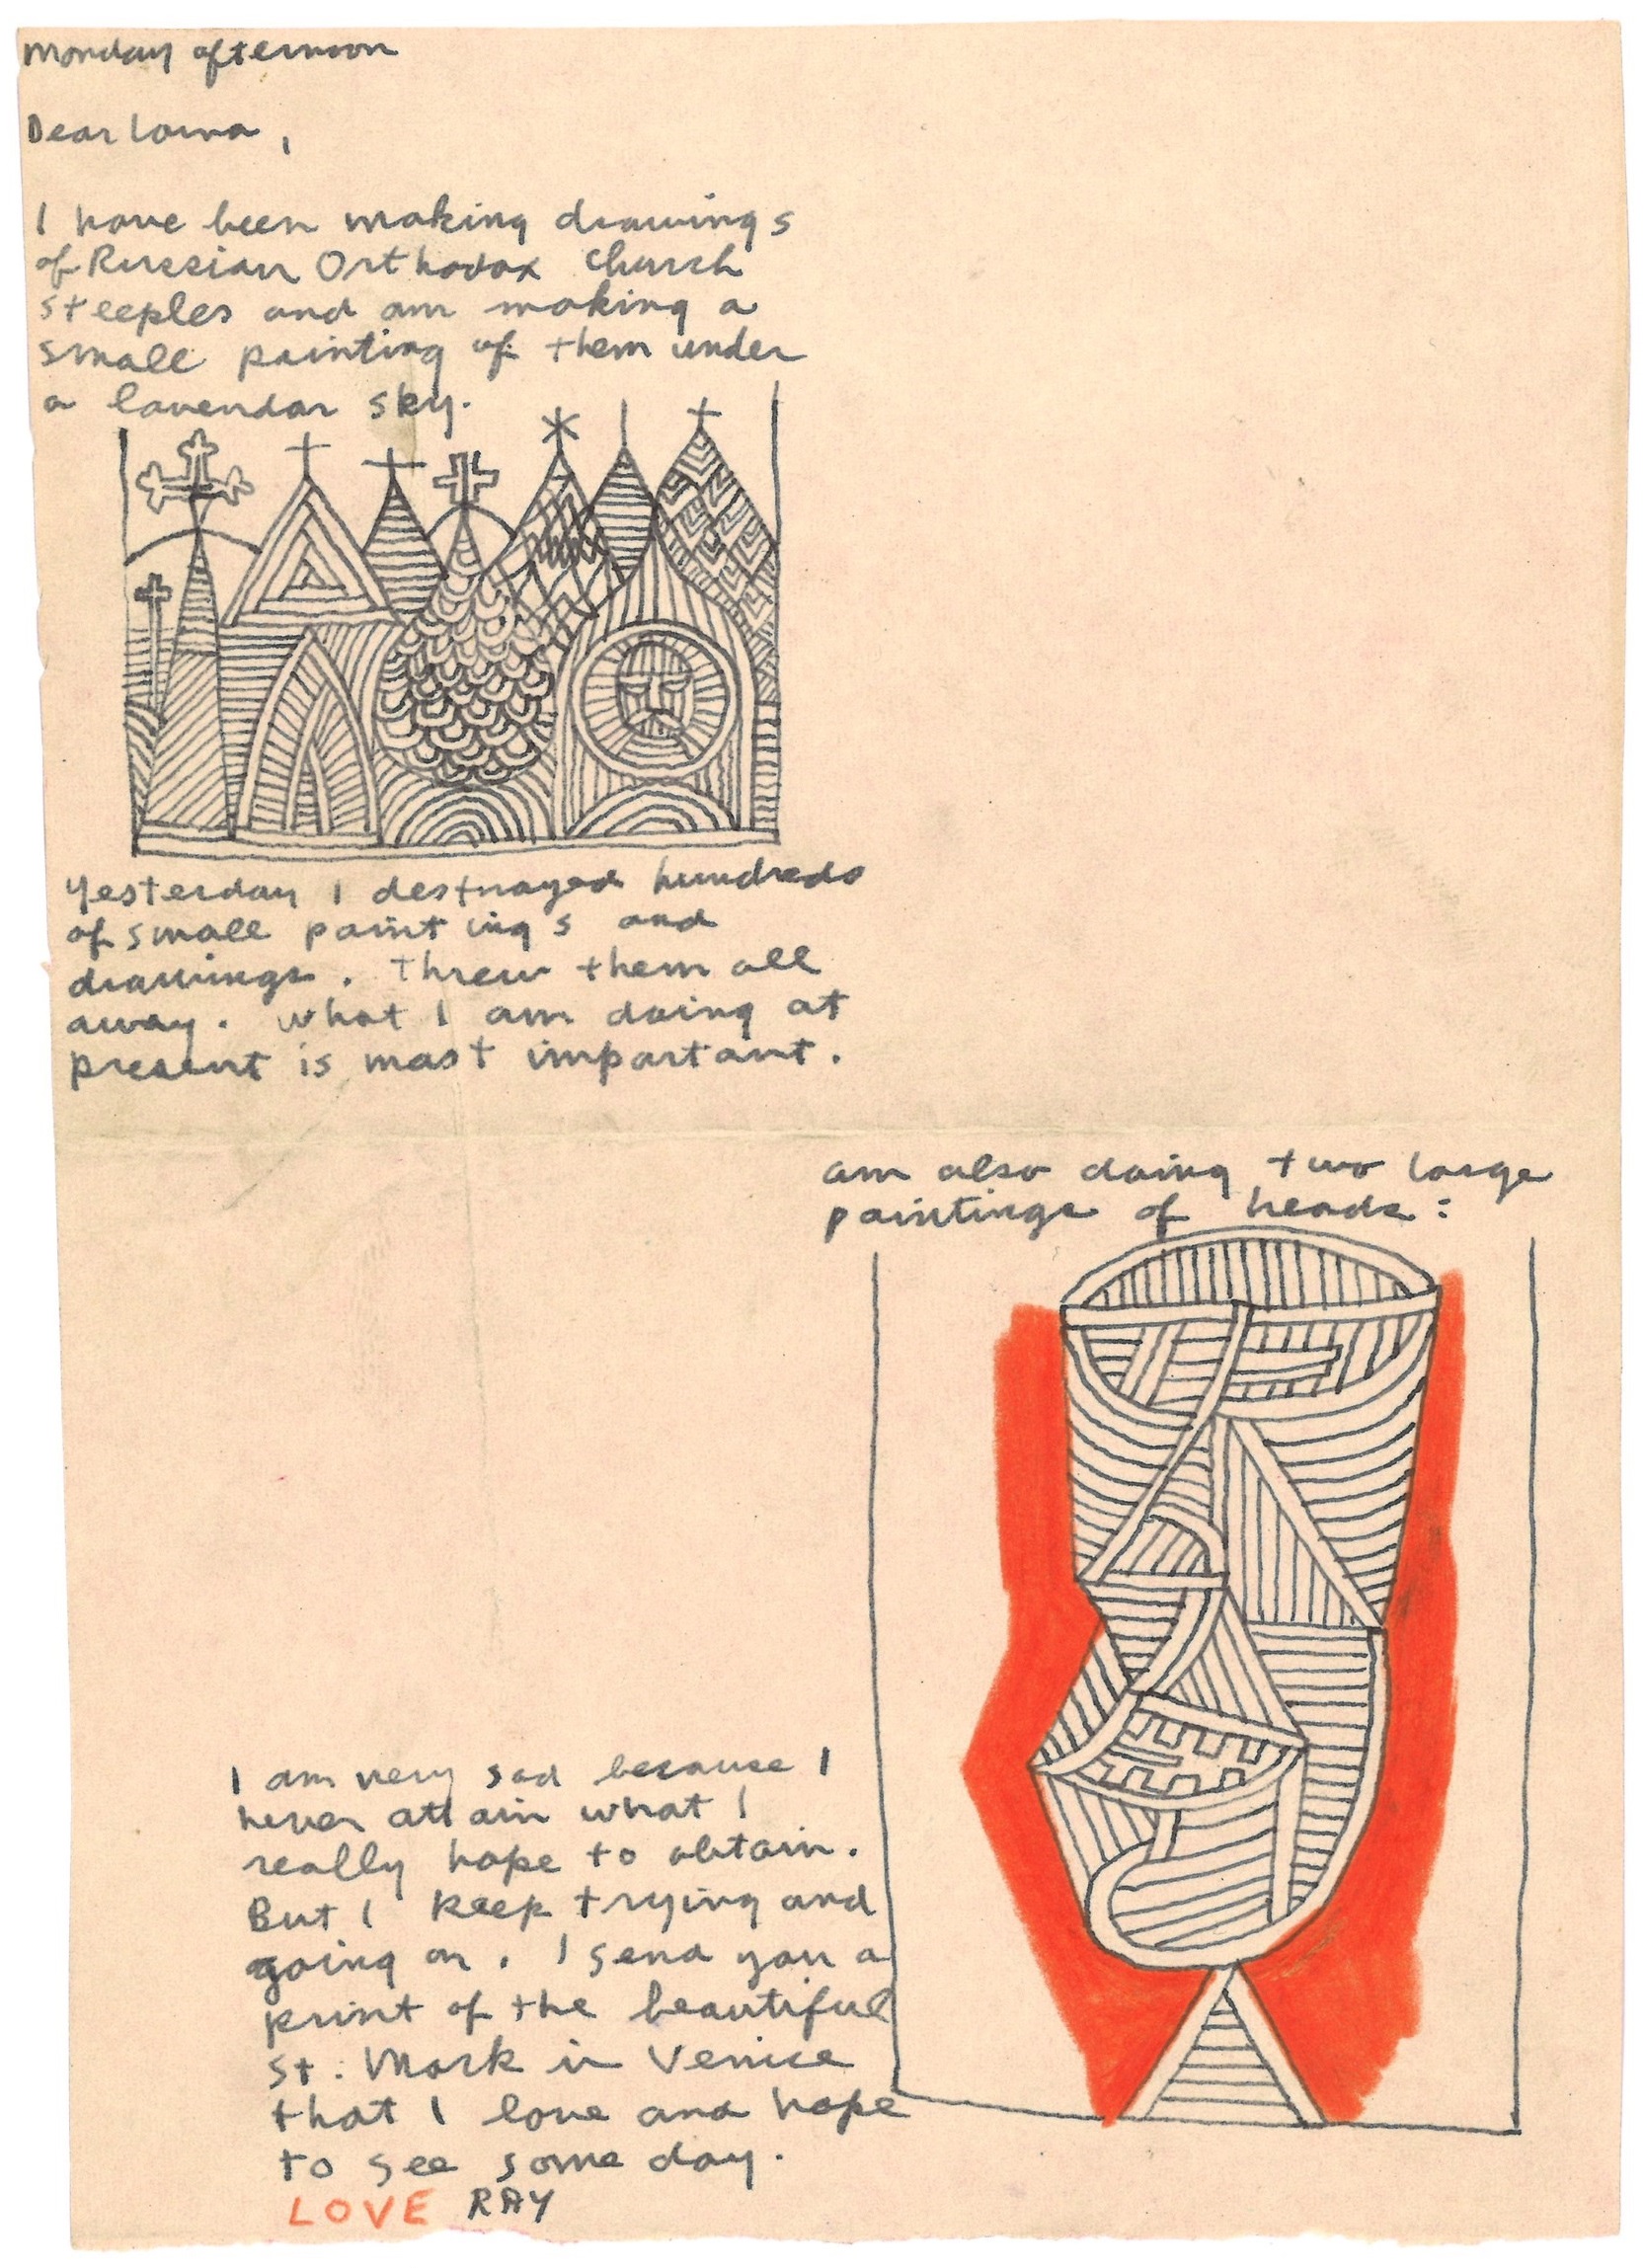 Monday afternoon
Dear Lorna,
I have been making drawings
of Russian Orthodox church
steeples and am making a
small painting of them under
a lavendar sky.
Yesterday I destroyed hundreds
of small paintings and
drawings. Threw them all
away. What I am doing at
present is most important.
am also doing two large
paintings of heads:
I am very sad because I
never attain what I
really hope to obtain.
But I keep trying and
going on. I send you a
print of the beautiful
St. Mark in Venice
that I love and hope
to see some day.
LOVE RAY